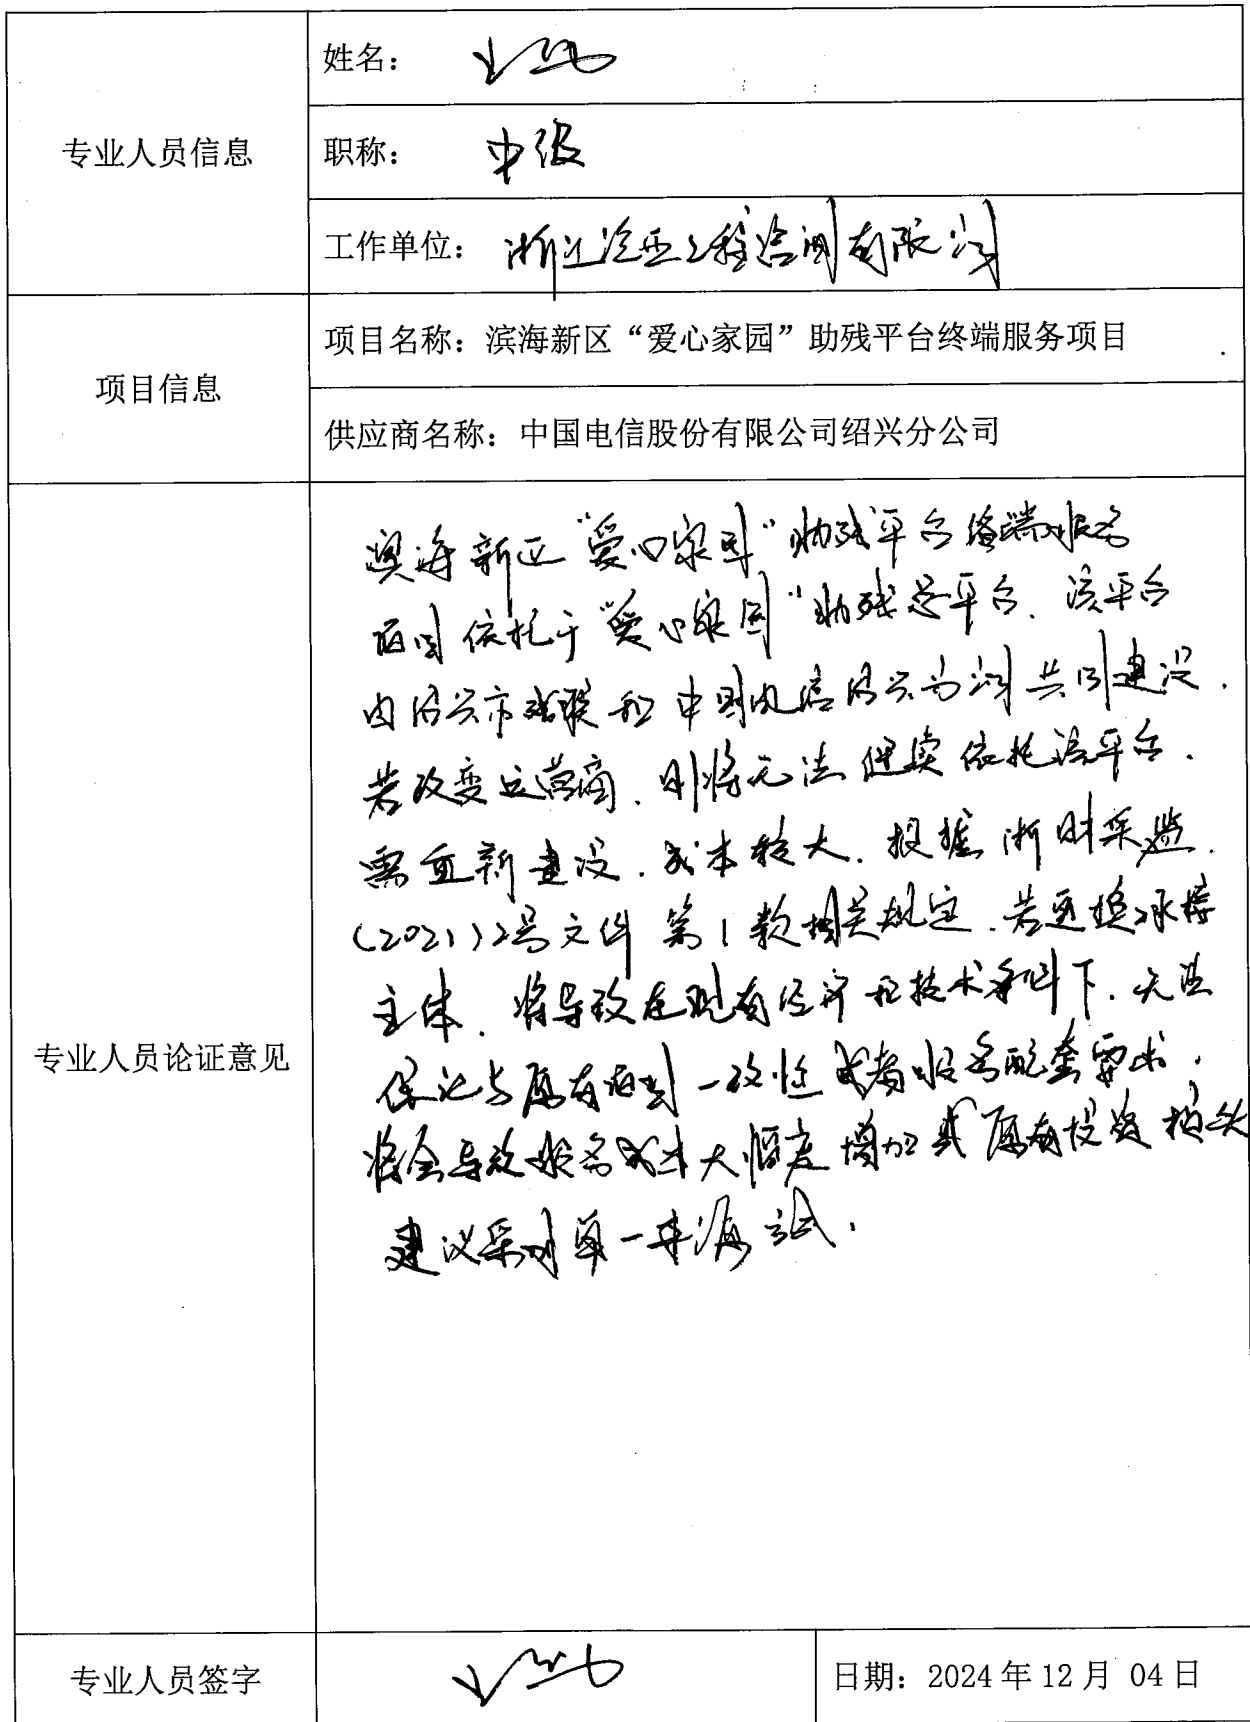 专业人员信息
姓名：
职称：中级
工作单位：浙江 工程咨询有限公司
项目信息
项目名称：滨海新区“爱心家园”助残平台终端服务项目
供应商名称：中国电信股份有限公司绍兴分公司
专业人员论证意见
滨海新区“爱心家园”助残平台终端服务
项目依托于“爱心家园”助残总平台，该平台
由绍兴市残联和中国电信绍兴分公司共同建设，
若改变运营商，则将无法继续依托该平台，
需重新建设，成本较大，根据浙财采监
（2021）2号文件第1款相关规定，若更换承接
主体，将导致在现有经济和技术条件下，无法
保证与原有项目一致性或者服务配套要求，
将会导致服务成本大幅度增加或原有投资损失
建议采用单一来源方式。
专业人员签字
日期：2024年12月 04日